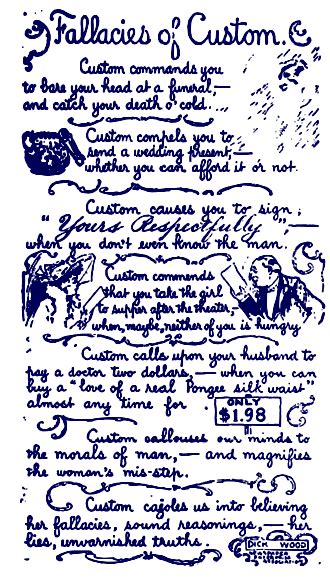 Fallacies of Custom.
Custom commands you
to bare your head at a funeral,—
and catch your death o' cold.
Custom compels you to
send a wedding present,—
whether you can afford it or not.
Custom causes you to sign;
"Yours Respectfully",—
when you don't even know the man.
Custom commends
that you take the girl
to supper after the theater,—
when, maybe, neither of you is hungry
Custom calls upon your husband to
pay a doctor two dollars,— when you can
buy a "love of a real Pongee silk waist"
almost any time for
ONLY
$1.98
Custom callouses our minds to
the morals of man,— and magnifies
the woman's mis-step.
Custom cajoles us into believing
her fallacies, sound reasonings,— her
lies, unvarnished truths.
DICK WOOD